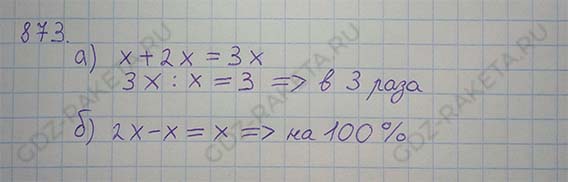 873.
а) x + 2x = 3x
3x : x = 3 => в 3 раза
б) 2x - x = x => на 100%
GDZ-RAKETA.RU
GDZ-RAKETA.RU
GDZ-RAKETA.RU